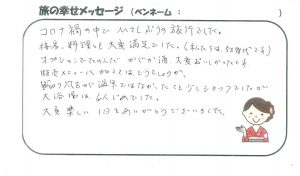 旅の幸せメッセージ (ペンネーム: )
コロナ禍の中 ひさしぶりの旅行でした。
接客、料理とも大変満足でした。(私たちは、60歳代です)
オプションでたのんだ かじか酒 大変おいしかったです。
販売メニューに加えてはどうでしょうか。
貸切り風呂が温泉ではなかったことが少しショックでしたが
大浴場は、よかったです。
大変楽しい 1日をありがとうございました。